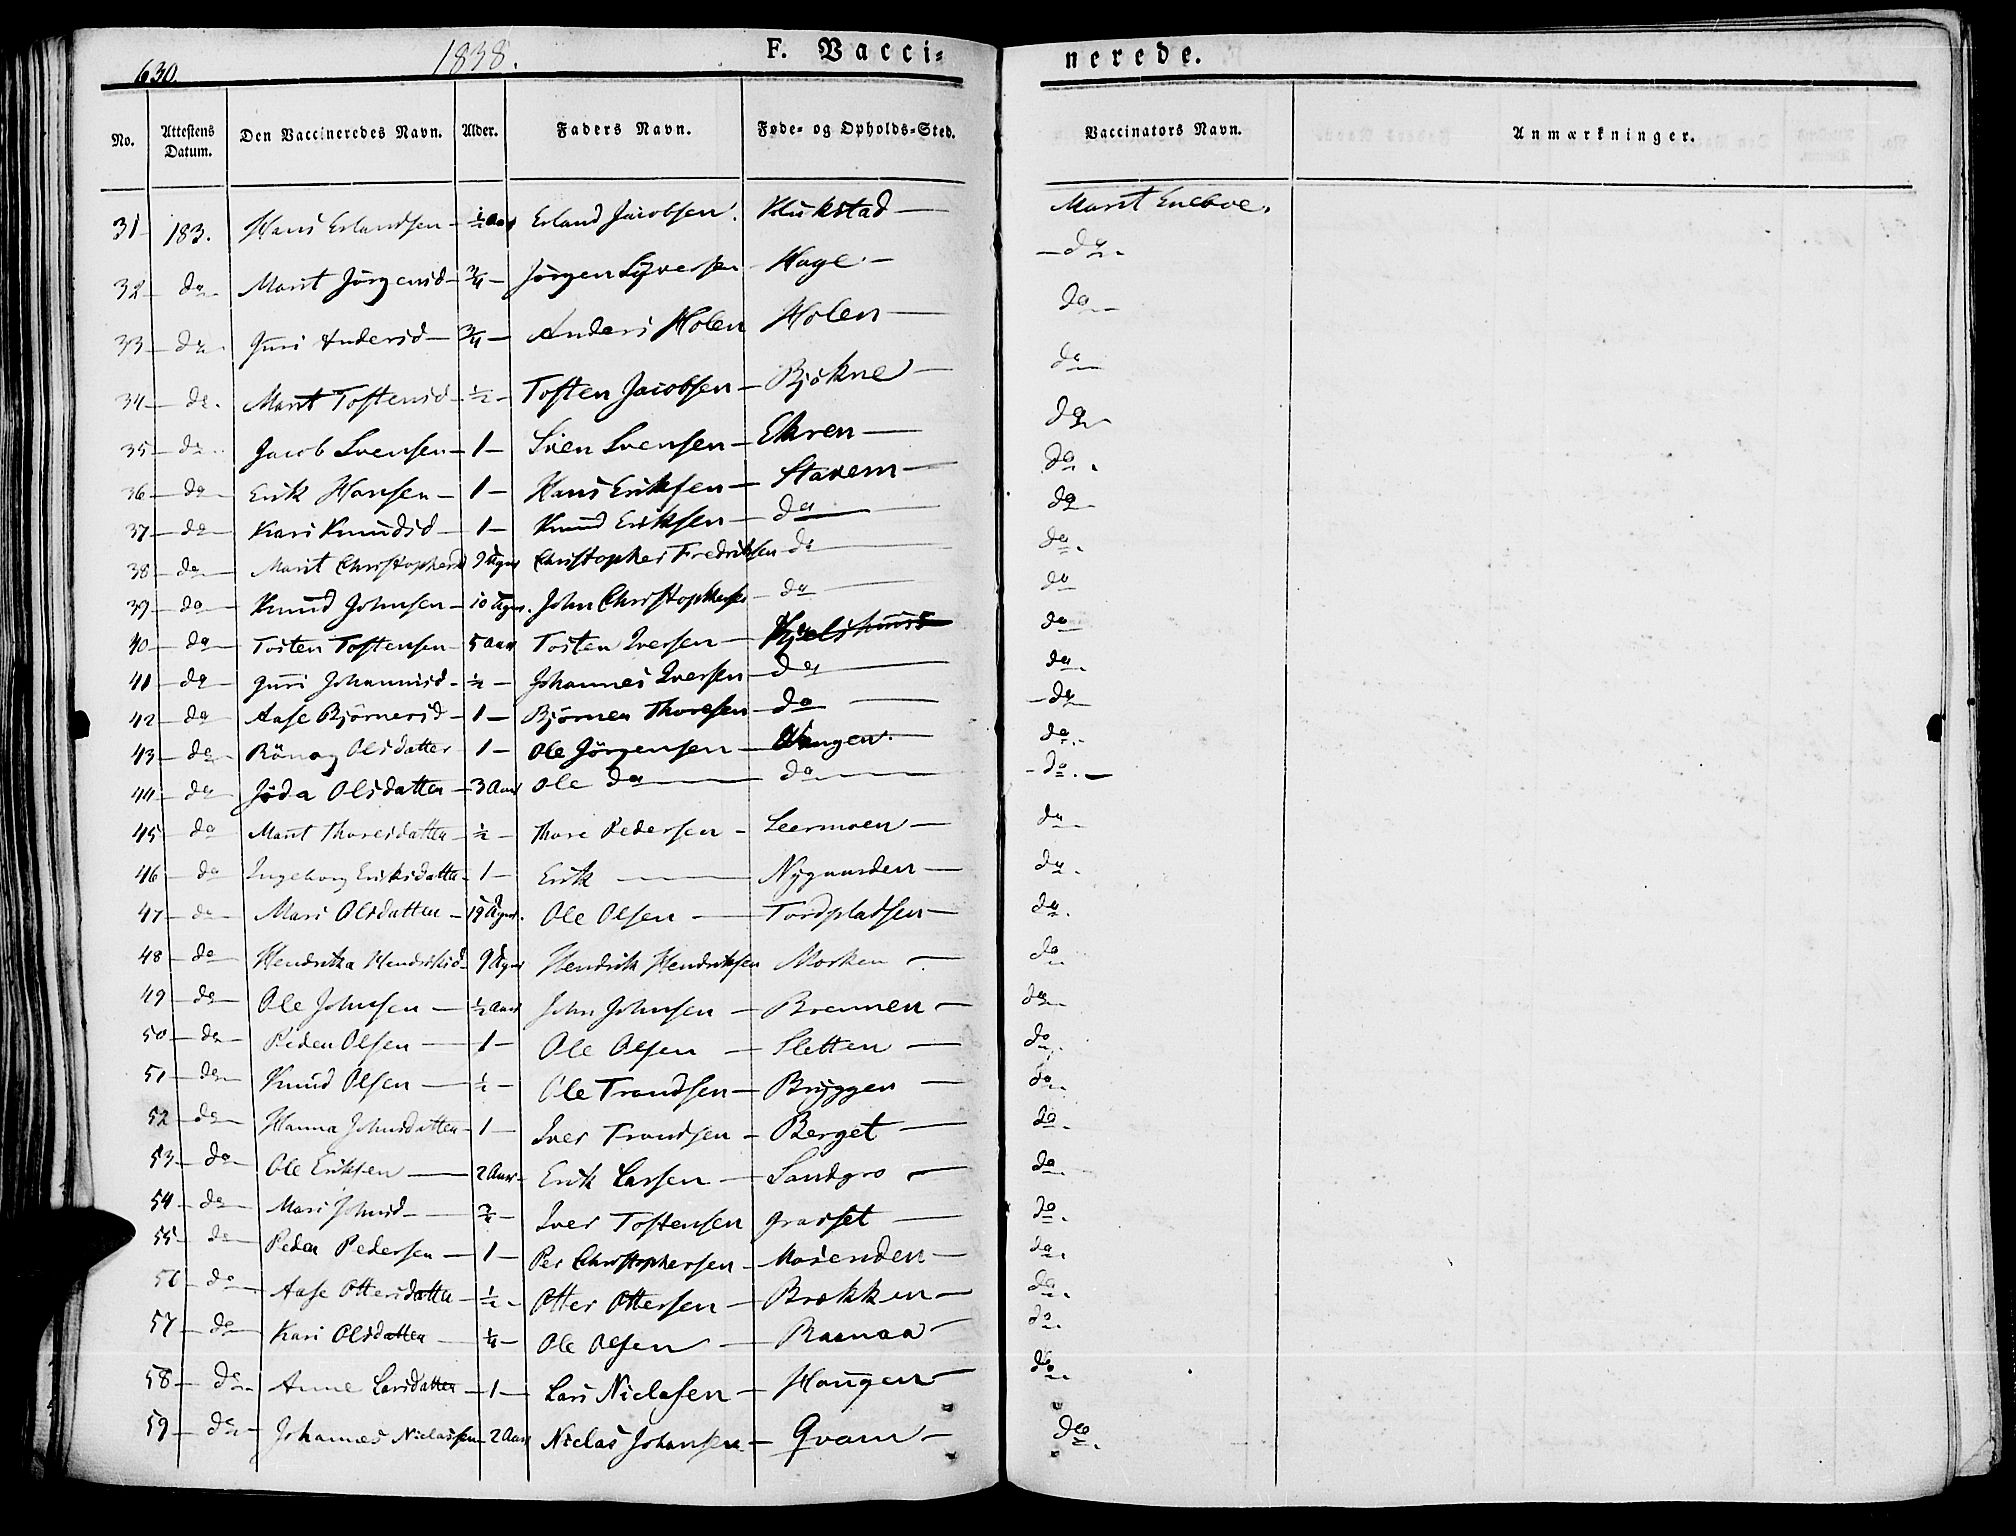 630.
1838.
F. Vacci-
nerede.
No. Attestens Datum. Den Vaccineredes Navn. Alder. Faders Navn. Føde- og Opholds-Sted. Vaccinators Navn. Anmærkninger.
31 183. Hans Erlandsen - ½ Aar Erland Jacobsen. Klukstad - Marit Eneboe.
32 - do - Marit Jörgensd - ¾ - Jörgen Syversen - Hage - - do -
33 - do - Guri Andersd - ¾ - Anders Holen Holen - do -
34 - do - Marit Tostensd - ½ - Tosten Jacobsen - Bjökne - do -
35 - do - Jacob Svensen - 1 - Sven Svensen - Ekren - do -
36 - do - Erik Hansen - 1 - Hans Eriksen - Stavem - do -
37 - do - Kari Knudsd - 1 - Knud Eriksen - do - do -
38 - do - Marit Christophersd 9 Uger Christopher Fredriksen - do - do -
39 - do - Knud Johnsen - 10 Uger. John Christophersen - do - do
40 - do - Tosten Tostensen - 5 Aar Tosten Iversen - Kjelshuus do -
41 - do - Guri Johannisd - ½ - Johannes Iversen - do - do -
42 - do - Aase Björnersd - 1 - Björner Thoresen - do - - do -
43 - do - Rönog Olsdatter - 1 - Ole Jörgensen - Vangen - do -
44 - do - Jöda Olsdatter - 3 Aar Ole do - do - - do -
45 - do Marit Thoresdatter - ½ - Thore Pedersen - Leermoen - do -
46 - do Ingeborg Eriksdatter - 1 - Erik - Nygaarden - do -
47 - do - Mari Olsdatter - 19 Uger. Ole Olsen - Tordpladsen - do -
48 - do - Hendrikka Hendriksd - 9 Uger Hendrik Hendriksen Morken - do -
49 - do - Ole Johnsen - ½ Aar John Johnsen - Brennen - do -
50 - do - Peder Olsen - 1 - Ole Olsen - Sletten - do -
51 - do - Knud Olsen - ½ - Ole Trondsen - Bryggen - do -
52 - do - Hanna Johnsdatter - 1 - Iver Trondsen - Berget - do -
53 - do - Ole Eriksen - 2 Aar - Erik Larsen - Sandgro - do -
54 - do - Mari Johnsd - ¾ - Iver Tostensen Graset - do -
55 - do - Peder Pedersen - 1 - Per Christophersen - Mosenden - do -
56 - do - Aase Ottersdatter - ½ - Otter Ottersen - Brækken - do -
57 - do - Kari Olsdatter - ¼ - Ole Olsen - Raanaa - do -
58 - do - Anne Larsdatter - 1 - Lars Niclasen - Haugen - do -
59 - do - Johannes Niclassen - 2 Aar Niclas Johansen - Qvam - do -